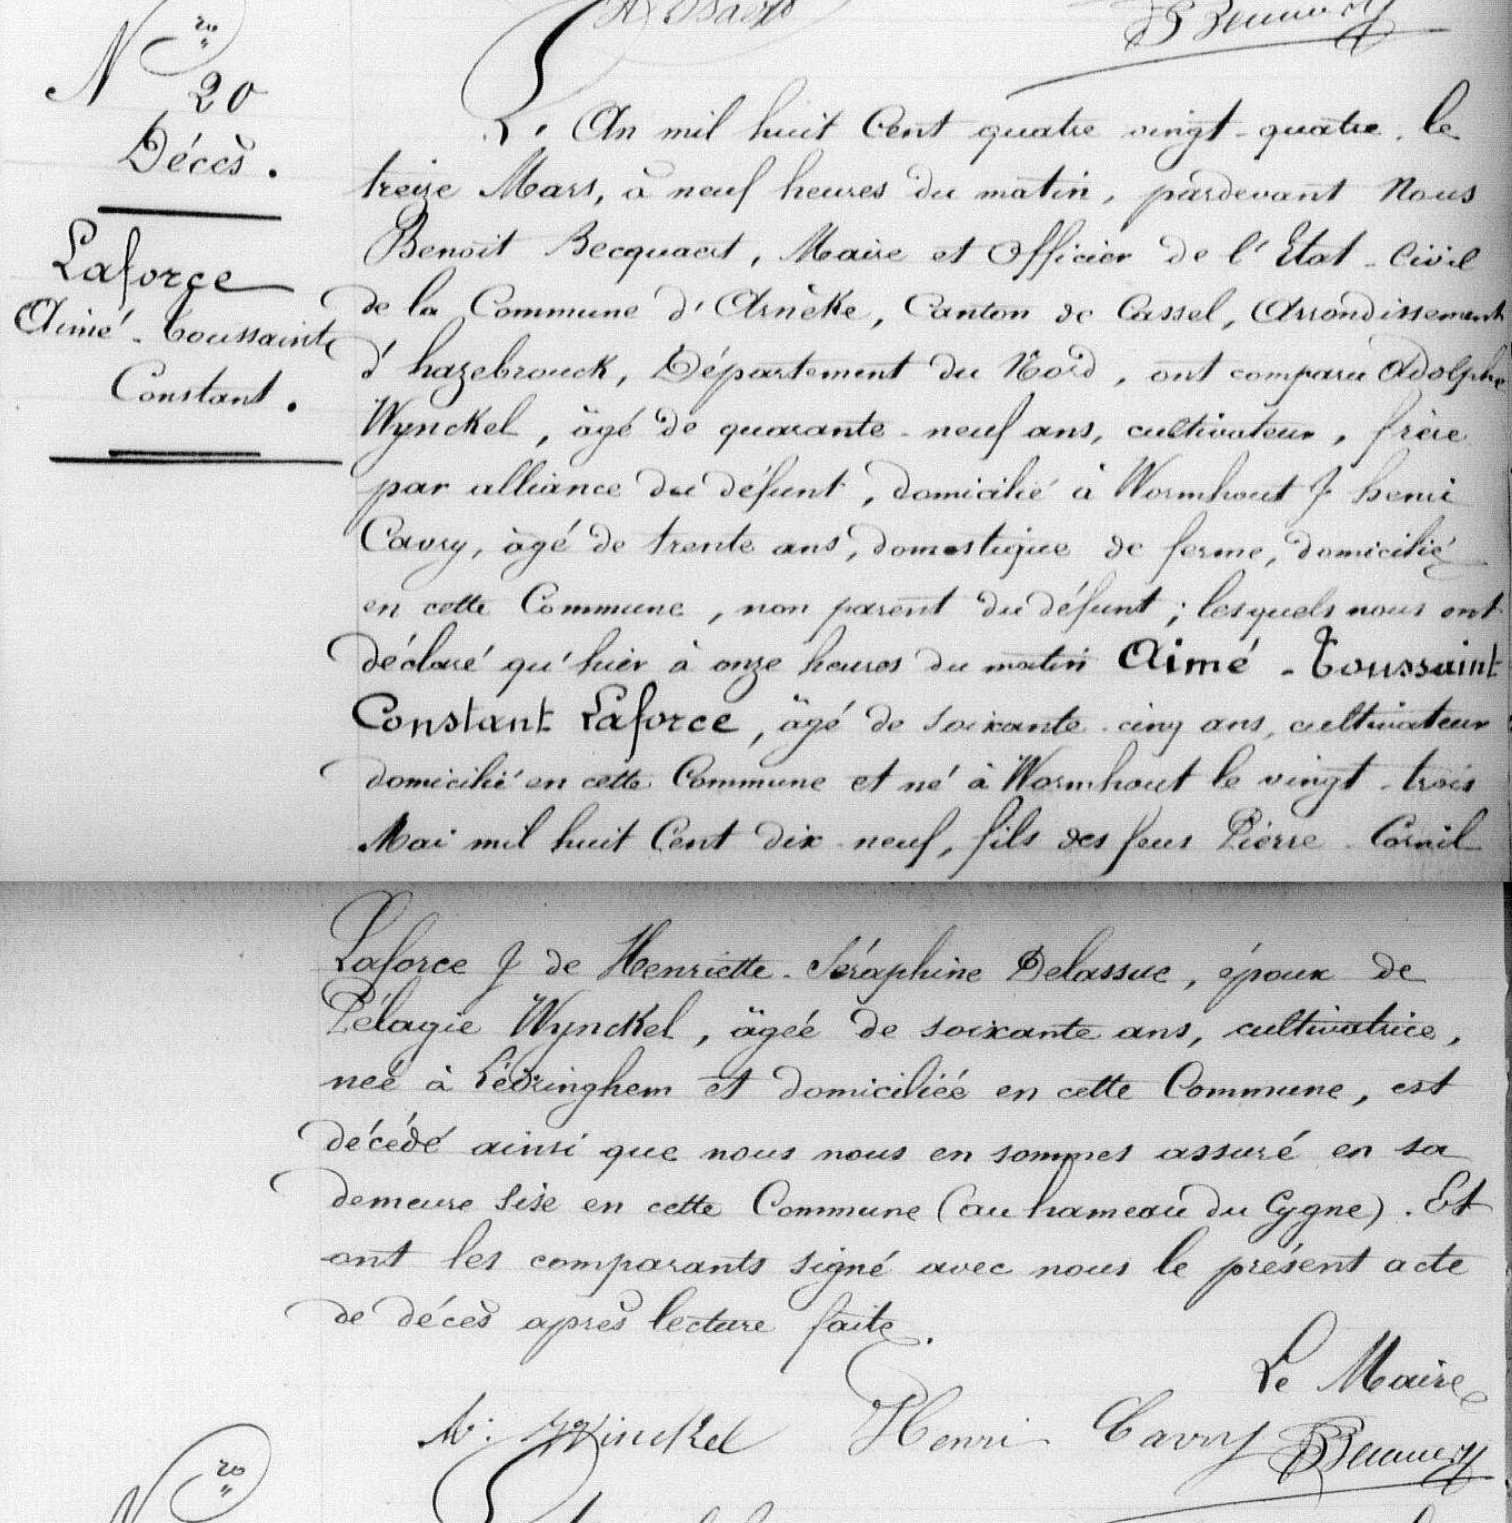 Nro 20
Décès.
Laforce
Aimé - Toussaint
Constant.
L'An mil huit Cent quatre vingt-quatre, le
treize Mars, à neuf heures du matin, pardevant Nous
Benoit Becquaert, Maire et Officier de l'Etat-Civil
de la Commune d'Arnèke, Canton de Cassel, Arrondissement
d'hazebrouck, Département du Nord, ont comparu Adolphe
Wynckel, âgé de quarante-neuf ans, cultivateur, frère
par alliance du défunt, domicilié à Wormhout & henri
Cavry, âgé de trente ans, domestique de ferme, domicilié
en cette Commune, non parent du défunt; lesquels nous ont
déclaré qu'hier à onze heures du matin Aimé - Toussaint
Constant Laforce, âgé de soixante-cinq ans, cultivateur
domicilié en cette Commune et né à Wormhout le vingt-trois
Mai mil huit Cent dix-neuf, fils des feus Pierre-Cornil
Laforce & de Henriette-Séraphine Delassue, époux de
Pélagie Wynckel, âgée de soixante ans, cultivatrice,
neé à Lédringhem et domiciliée en cette Commune, est
décédé ainsi que nous nous en sommes assuré en sa
demeure sise en cette Commune (au hameau du Cygne). Et
ont les comparants signé avec nous le présent acte
de décès après lecture faite.
Le Maire
Winckel Henri Cavry
Nro